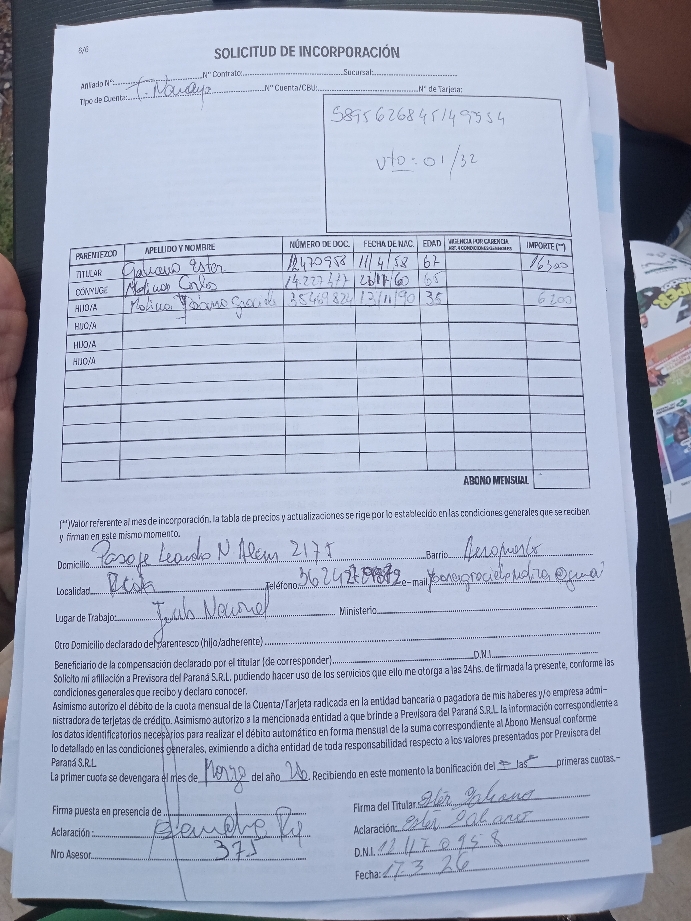 S/6
SOLICITUD DE INCORPORACIÓN
Afiliado N°: N° Contrato: Sucursal:
Tipo de Cuenta: T. Naranja N° Cuenta/CBU: N° de Tarjeta:
5895626845149354
Vto: 01/32
PARENTEZCO APELLIDO Y NOMBRE NÚMERO DE DOC. FECHA DE NAC. EDAD VIGENCIA POR CARENCIA ART. 4 CONDICIONES GENERALES IMPORTE (**)
TITULAR Galeano Ester 12470958 11/4/58 67 16300
CONYUGE Molina Carlos 14.227.477 60 65
HIJO/A Molina Graciela 35469824 13/11/90 35 6200
HIJO/A
HIJO/A
HIJO/A
ABONO MENSUAL
(**)Valor referente al mes de incorporación, la tabla de precios y actualizaciones se rige por lo establecido en las condiciones generales que se reciben
y firman en este mismo momento.
Domicilio Pasaje Leandro N Alem 2175 Barrio Aeropuerto
Localidad Teléfono: e-mail
Lugar de Trabajo: Nacional Ministerio
Otro Domicilio declarado del parentesco (hijo/adherente)
Beneficiario de la compensación declarado por el titular (de corresponder) D.N.I.
Solicito mi afiliación a Previsora del Paraná S.R.L. pudiendo hacer uso de los servicios que ello me otorga a las 24hs. de firmada la presente, conforme las
condiciones generales que recibo y declaro conocer.
Asimismo autorizo el débito de la cuota mensual de la Cuenta/Tarjeta radicada en la entidad bancaria o pagadora de mis haberes y/o empresa admi-
nistradora de terjetas de crédito. Asimismo autorizo a la mencionada entidad a que brinde a Previsora del Paraná S.R.L. la información correspondiente a
los datos identificatorios necesarios para realizar el débito automático en forma mensual de la suma correspondiente al Abono Mensual conforme
lo detallado en las condiciones generales, eximiendo a dicha entidad de toda responsabilidad respecto a los valores presentados por Previsora del
Paraná S.R.L.
La primer cuota se devengara el mes de Marzo del año 26. Recibiendo en este momento la bonificación del - las - primeras cuotas.-
Firma puesta en presencia de
Firma del Titular: Ester Galeano
Aclaración:
Aclaración: Ester Galeano
Nro Asesor 375
D.N.I. 12470958
Fecha: 17.3 26